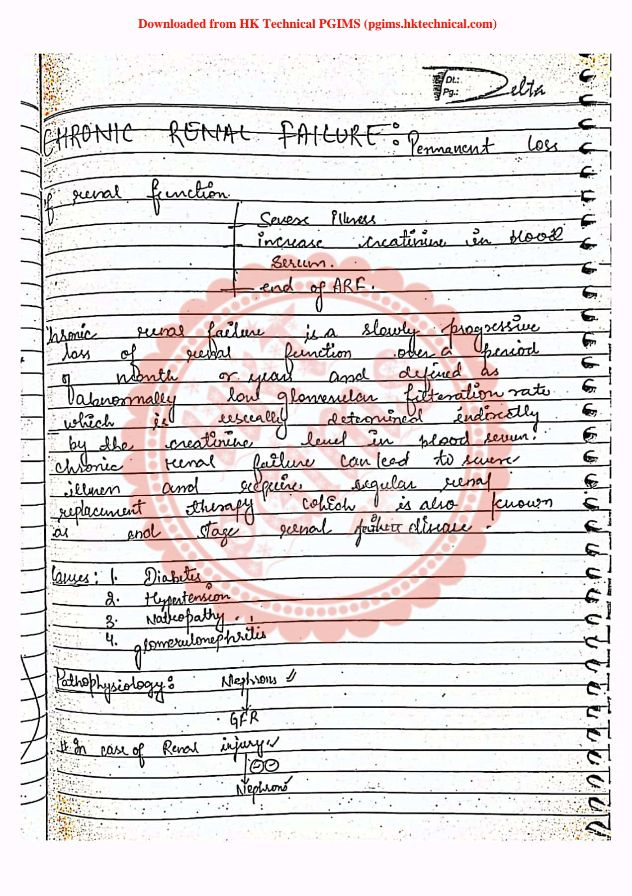 Downloaded from HK Technical PGIMS (pgims.hktechnical.com)
Dt.:
Pg.:
Delta
CHRONIC RENAL FAILURE : Permanent loss
of renal function
Severe illness
increase creatinine in blood
serum.
end of ARF.
Chronic renal failure is a slowly progressive
loss of renal function over a period
of month or year and defined as
abnormally low glomerular filteration rate
which is usually determined indirectly
by the creatinine level in blood serum.
chronic renal failure can lead to severe
illness and require regular renal
replacement therapy which is also known
as end stage renal disease.
Causes: 1. Diabetes
2. Hypertension
3. Nahropathy.
4. glomerulonephritis
Pathophysiology: Nephrons
GFR
# In case of Renal injury
Nephrons